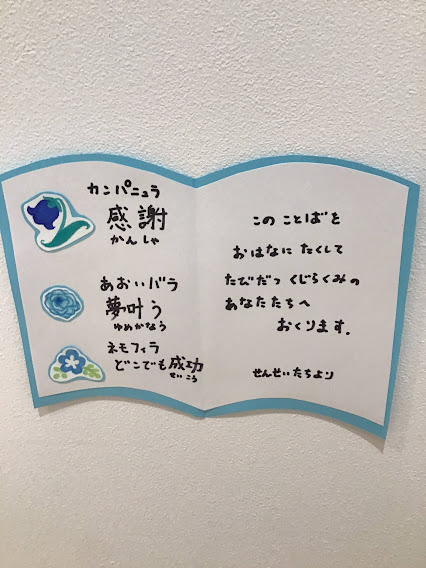 カンパニュラ
感謝
かんしゃ
あおいバラ
夢叶う
ゆめかなう
ネモフィラ
どこでも成功
せいこう
このことばを
おはなにたくして
たびだつくじらくみの
あなたたちへ
おくります。
せんせいたちより